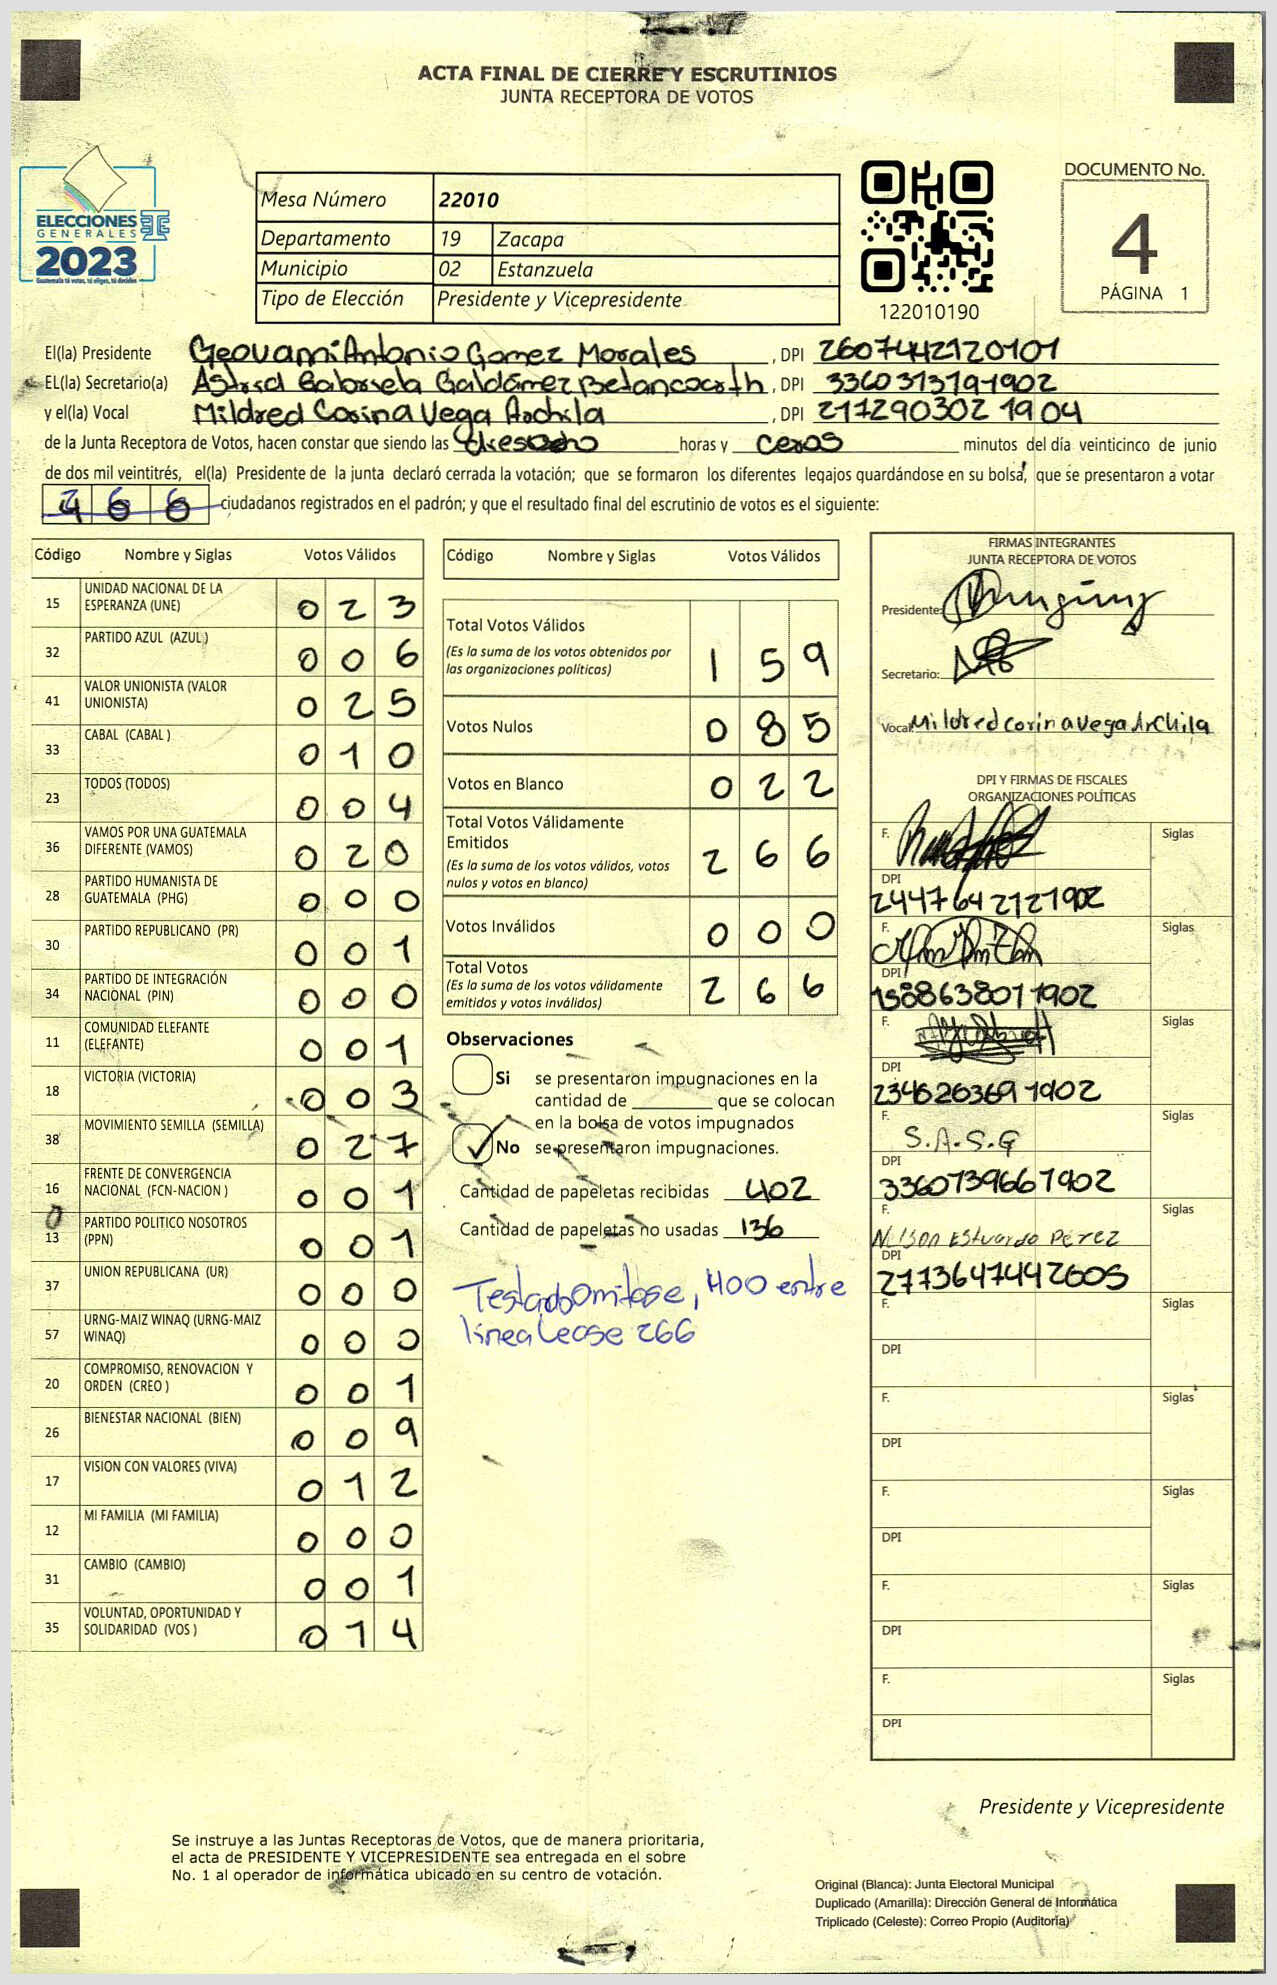 ACTA FINAL DE CIERRE Y ESCRUTINIOS
JUNTA RECEPTORA DE VOTOS
ELECCIONES
GENERALES
2023
Guatemala tú votas, tú eliges, tú decides
Mesa Número 22010
Departamento 19 Zacapa
Municipio 02 Estanzuela
Tipo de Elección Presidente y Vicepresidente
122010190
DOCUMENTO No.
4
PÁGINA 1
El(la) Presidente Geovanni Antonio Gomez Morales , DPI 2607442120101
EL(la) Secretario(a) Astrid Gabriela Galdámez Betancourth , DPI 3360313191902
y el(la) Vocal Mildred Corina Vega Archila , DPI 2172903021904
de la Junta Receptora de Votos, hacen constar que siendo las dieciocho horas y ceros minutos del día veinticinco de junio
de dos mil veintitrés, el(la) Presidente de la junta declaró cerrada la votación; que se formaron los diferentes legajos quardándose en su bolsa, que se presentaron a votar
66 ciudadanos registrados en el padrón; y que el resultado final del escrutinio de votos es el siguiente:
Código Nombre y Siglas Votos Válidos
15 UNIDAD NACIONAL DE LA ESPERANZA (UNE) 023
32 PARTIDO AZUL (AZUL) 006
41 VALOR UNIONISTA (VALOR UNIONISTA) 025
33 CABAL (CABAL ) 010
23 TODOS (TODOS) 004
36 VAMOS POR UNA GUATEMALA DIFERENTE (VAMOS) 020
28 PARTIDO HUMANISTA DE GUATEMALA (PHG) 000
30 PARTIDO REPUBLICANO (PR) 001
34 PARTIDO DE INTEGRACIÓN NACIONAL (PIN) 000
11 COMUNIDAD ELEFANTE (ELEFANTE) 001
18 VICTORIA (VICTORIA) 003
38 MOVIMIENTO SEMILLA (SEMILLA) 027
16 FRENTE DE CONVERGENCIA NACIONAL (FCN-NACION ) 001
13 PARTIDO POLITICO NOSOTROS (PPN) 001
37 UNION REPUBLICANA (UR) 000
57 URNG-MAIZ WINAQ (URNG-MAIZ WINAQ) 000
20 COMPROMISO, RENOVACION Y ORDEN (CREO ) 001
26 BIENESTAR NACIONAL (BIEN) 009
17 VISION CON VALORES (VIVA) 012
12 MI FAMILIA (MI FAMILIA) 000
31 CAMBIO (CAMBIO) 001
35 VOLUNTAD, OPORTUNIDAD Y SOLIDARIDAD (VOS ) 014
Código Nombre y Siglas Votos Válidos
Total Votos Válidos 159
(Es la suma de los votos obtenidos por
las organizaciones políticas)
Votos Nulos 085
Votos en Blanco 022
Total Votos Válidamente
Emitidos 266
(Es la suma de los votos válidos, votos
nulos y votos en blanco)
Votos Inválidos 000
Total Votos 266
(Es la suma de los votos válidamente
emitidos y votos inválidos)
Observaciones
Si se presentaron impugnaciones en la
cantidad de ________ que se colocan
en la bolsa de votos impugnados
No se presentaron impugnaciones.
Cantidad de papeletas recibidas 402
Cantidad de papeletas no usadas 136
Testado Omitase, 400 entre
linea Lease 266
FIRMAS INTEGRANTES
JUNTA RECEPTORA DE VOTOS
Presidente:
Secretario:
Vocal: Mildred Corina Vega Archila
DPI Y FIRMAS DE FISCALES
ORGANIZACIONES POLÍTICAS
F. Siglas
DPI
2447642121902
F. Siglas
DPI
1588638071902
F. Siglas
DPI
2346263691902
F. Siglas
S.A.S.G
DPI
3360739661902
F. Siglas
Nelson Estuardo Pérez
DPI
2773647442605
F. Siglas
DPI
F. Siglas
DPI
F. Siglas
DPI
F. Siglas
DPI
F. Siglas
DPI
Presidente y Vicepresidente
Se instruye a las Juntas Receptoras de Votos, que de manera prioritaria,
el acta de PRESIDENTE Y VICEPRESIDENTE sea entregada en el sobre
No. 1 al operador de informática ubicado en su centro de votación.
Original (Blanca): Junta Electoral Municipal
Duplicado (Amarilla): Dirección General de Informática
Triplicado (Celeste): Correo Propio (Auditoría)